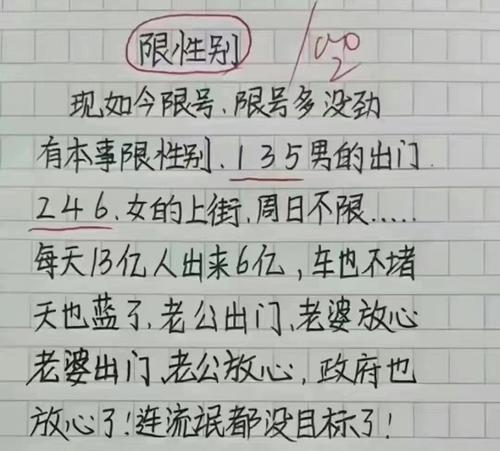 限性别
100
2
现如今限号、限号多没劲
有本事限性别、135男的出门.
246、女的上街,周日不限.....
每天13亿人出来6亿,车也不堵
天也蓝了、老公出门、老婆放心
老婆出门、老公放心,政府也
放心了!连流氓都没目标了!